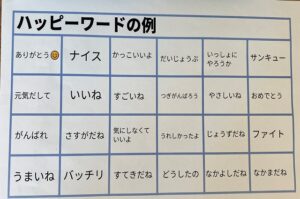 ハッピーワードの例
ありがとう😊 ナイス かっこいいよ だいじょうぶ いっしょに サンキュー
やろうか
元気だして いいね すごいね つぎがんばろう やさしいね おめでとう
がんばれ さすがだね 気にしなくて うれしかったよ じょうずだね ファイト
いいよ
うまいね バッチリ すてきだね どうしたの なかよしだね なかまだね